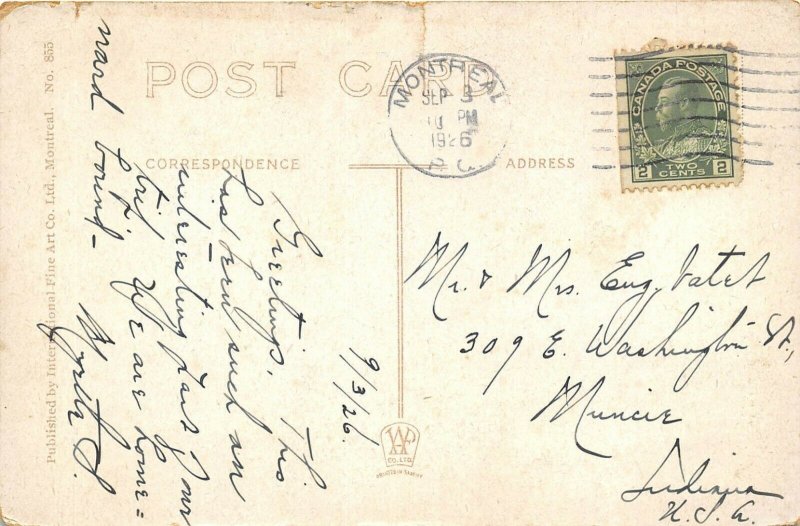 POST CARD
CORRESPONDENCE
ADDRESS
MONTREAL
SEP 3
PM
1926
P.Q.
CANADA POSTAGE
2 TWO CENTS 2
9/3/26.
Greetings. This
has been such an
interesting part of our
trip. We are home=
ward bound-
Myrtle S.
Mr. & Mrs. Eug. Vatet
309 E. Washington St.,
Muncie
Indiana
U.S.A.
Published by International Fine Art Co. Ltd., Montreal. No. 855
CO. LTD.